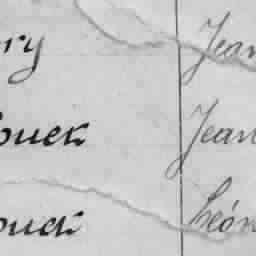 ry Jean
ouck Jean
ouck Léon